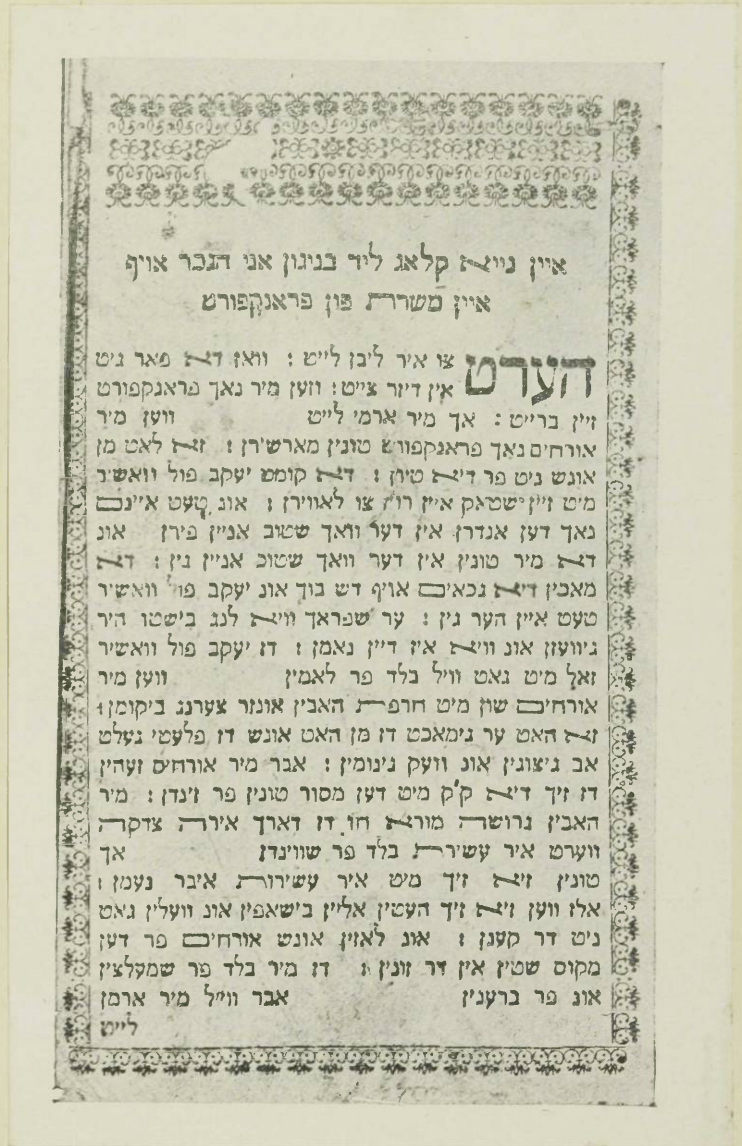 איין נייא קלאג ליד בניגון אני הגבר אויף
איין משררת פון פראנקפורט
הערט צו איר ליבן לייט : וואז דא פאר גיט
אין דיזר צייט : ווען מיר נאך פראנקפורט
זיין ברייט : אך מיר ארמי לייט ווען מיר
אורחים נאך פראנקפורט טונין מארשירן : זא לאט מן
אונש ניט פר דיא טירן : דא קומט יעקב פול וואשיר
מיט זיין שטאק איין רוח צו לאווירן : אונ טעט איינם
נאך דען אנדרן אין דער וואך שטוב אניין פירן אונ
דא מיר טונין אין דער וואך שטוב אניין גין : דא
מאכין דיא גבאים אויף דש בוך אונ יעקב פול וואשיר
טעט איין הער גין : ער שפראך וויא לנג בישטו היר
גיוועזן אונ וויא איז דיין נאמן : דז יעקב פול וואשיר
זאל מיט גאט וויל בלד פר לאמין ווען מיר
אורחים שון מיט חרפת האבין אונזר צערנג ביקומן :
זא האט ער גימאכט דז מן האט אונש דז פלעטי געלט
אב גיצוגין אונ וועק גינומין : אבר מיר אורחים זעהין
דז זיך דיא ק"ק מיט דען מסור טונין פר זינדן : מיר
האבין מורא דז דארך אירה צדקה
ווערט איר עשירת בלד פר שווינדן אך
טונין זיא זיך מיט איר עשירות איבר נעמן :
אלז ווען זיא זיך העטין אליין בישאפין אונ וועלין גאט
ניט דר קענן : אונ לאזין אונש אורחים פר דען
מקום שטין אין דר זונין : דז מיר בלד פר שמעלצין
אונ פר ברענין אבר ווייל מיר ארמן
לייט